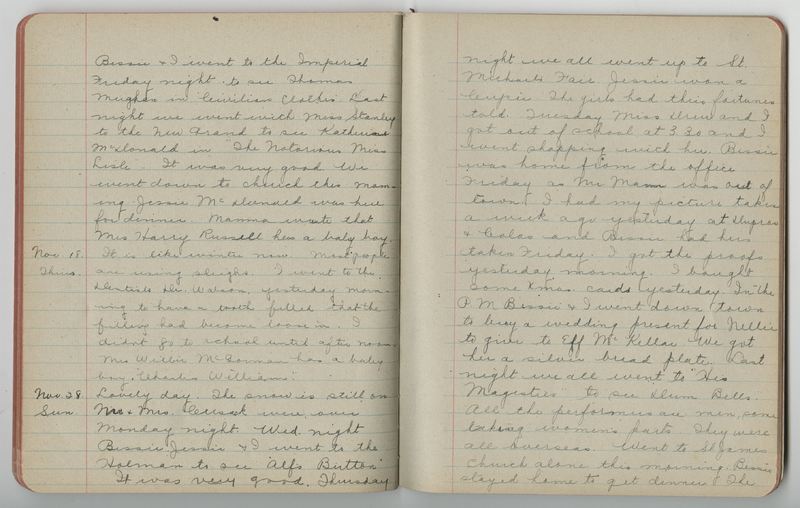 Bessie & I went to the Imperial
Friday night to see Thomas
Meighan in "Civilian Clothes" Last
night we went with Miss Stanley
to the New Grand to see Katherine
McDonald in "The Notorious Miss
Lisle" It was very good We
went down to church this morn-
ing. Jessie McDonald was here
for dinner. Mamma wrote that
Mrs Harry Russell has a baby boy.
Nov. 18. It is like winter now. Most people
Thurs. are using sleighs. I went to the
dentists Dr. Watson, yesterday morn-
ing to have a tooth filled that the
filling had become loose in. I
didn't go to school until after noon.
Mrs Willie McGorman has a baby
boy, "Charles Williams".
Nov. 28 Lovely day. The snow is still on
Sun. Mr & Mrs. were over
Monday night. Wed. night
Bessie, Jessie & I went to the
Holman to see "Alf's Button"
It was very good. Thursday
night we all went up to St.
Michaels Fair. Jessie won a
Cupie. The girls had their fortunes
told. Tuesday Miss Urew and I
got out of school at 3.30 and I
went shopping with her. Bessie
was home from the office
Friday as Mr Mann was out of
town. I had my picture taken
a week ago yesterday at
& and Bessie had hers
taken Friday. I got the proofs
yesterday morning. I bought
some Xmas. cards yesterday. In the
P.M Bessie & I went down town
to buy a wedding present for Nellie
to give to Eff McKellar We got
her a silver bread plate. Last
night we all went to "His
Majesties" to see Dum Bells.
All the performers are men, some
taking women's parts. They were
all overseas. Went to St James
Church alone this morning. Bessie
stayed home to get dinner. The